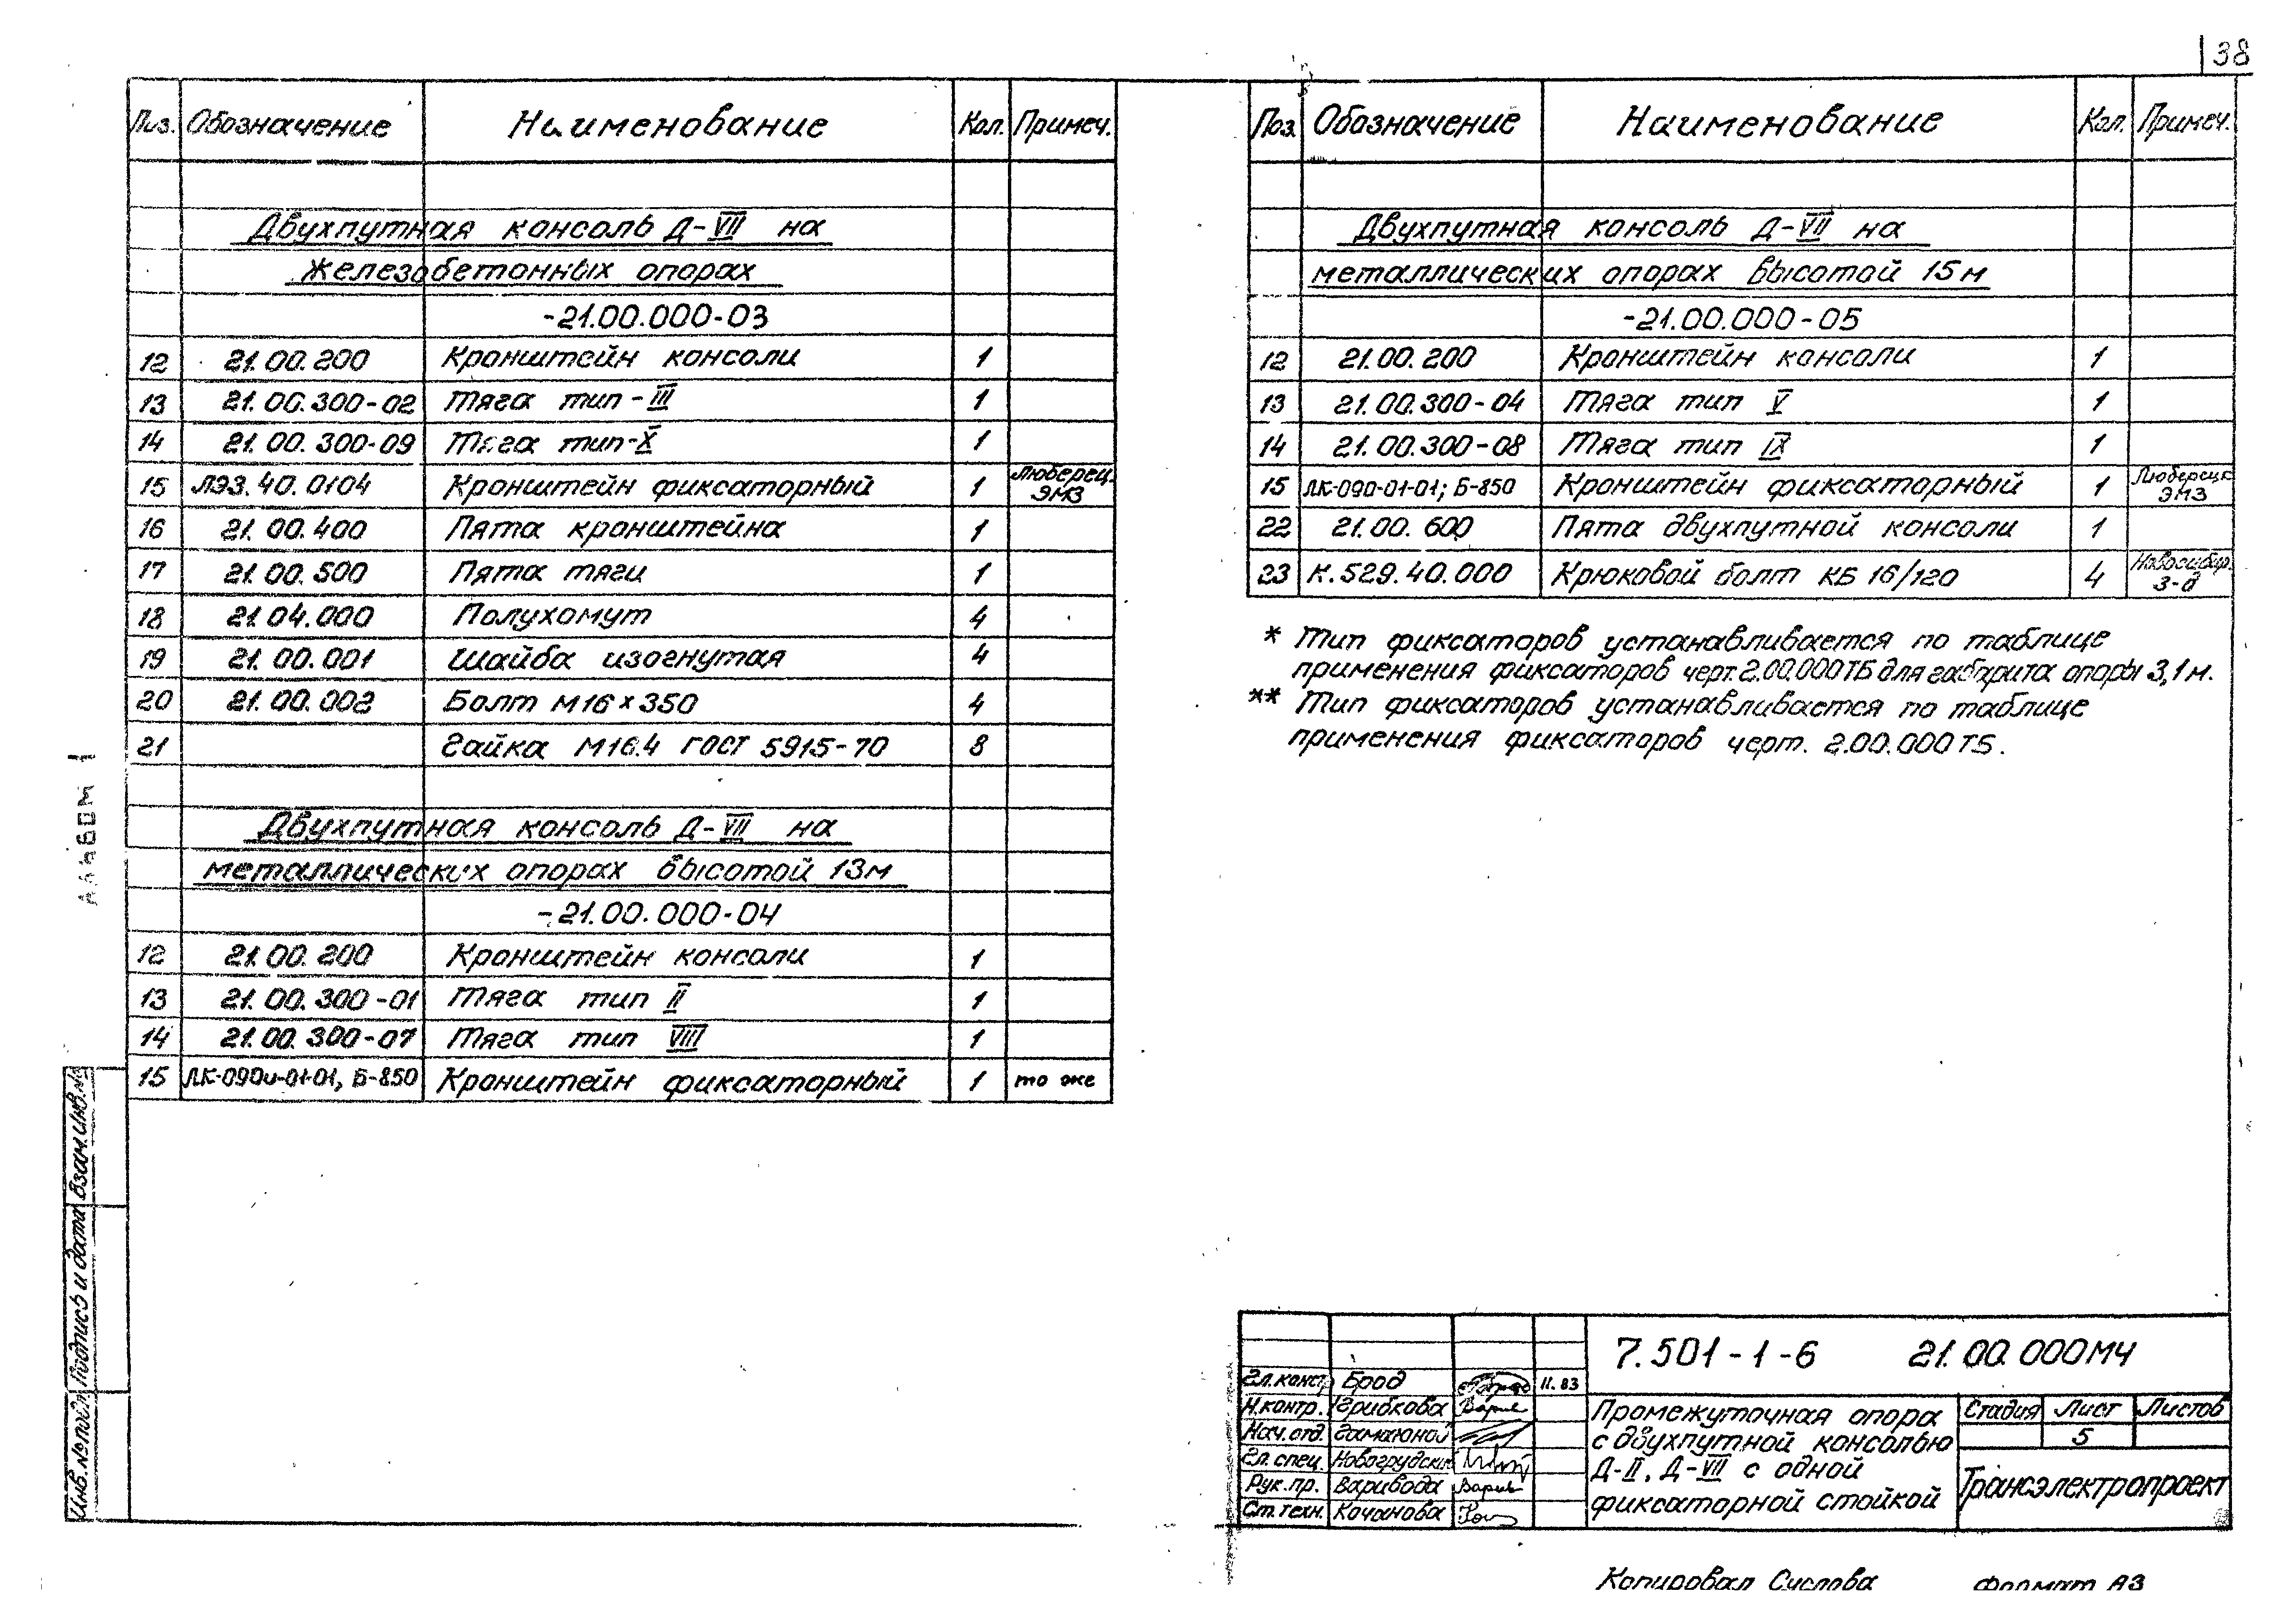 38
Поз. Обозначение Наименование Кол. Примеч.
Двухпутная консоль Д-VII на
железобетонных опорах
-21.00.000-03
12 21.00.200 Кронштейн консоли 1
13 21.00.300-02 Тяга тип-III 1
14 21.00.300-09 Тяга тип-X 1
15 ЛЭЗ.40.0104 Кронштейн фиксаторный 1 Люберец. ЭМЗ
16 21.00.400 Пята кронштейна 1
17 21.00.500 Пята тяги 1
18 21.04.000 Полухомут 4
19 21.00.001 Шайба изогнутая 4
20 21.00.002 Болт М16×350 4
21 Гайка М16.4 ГОСТ 5915-70 8
Двухпутная консоль Д-VII на
металлических опорах высотой 13м
-21.00.000-04
12 21.00.200 Кронштейн консоли 1
13 21.00.300-01 Тяга тип II 1
14 21.00.300-07 Тяга тип VIII 1
15 Б-850 Кронштейн фиксаторный 1 то же
Поз. Обозначение Наименование Кол. Примеч.
Двухпутная консоль Д-VII на
металлических опорах высотой 15м
-21.00.000-05
12 21.00.200 Кронштейн консоли 1
13 21.00.300-04 Тяга тип V 1
14 21.00.300-08 Тяга тип IX 1
15 ЛК-090-01-01; Б-850 Кронштейн фиксаторный 1 Люберецк ЭМЗ
22 21.00.600 Пята двухпутной консоли 1
23 К.529.40.000 Крюковой болт КБ 16/120 4 Новосибир. з-д
* Тип фиксаторов устанавливается по таблице
применения фиксаторов черт. 2.00.000ТБ для габарита опоры 3,1м.
** Тип фиксаторов устанавливается по таблице
применения фиксаторов черт. 2.00.000ТБ.
Альбом 1
Инв.№подл. Подпись и дата Взам.инв.№
7.501-1-6 21.00.000МЧ
Гл.констр Брод 11.83
Н.контр. Грибкова
Нач.отд. Гамаюнов
Гл.спец. Новогрудский
Рук.пр. Варивода
Ст.техн. Кочанова
Промежуточная опора
с двухпутной консолью
Д-II, Д-VII с одной
фиксаторной стойкой
Стадия Лист Листов
5
Трансэлектропроект
Копировал Суслова Формат А3